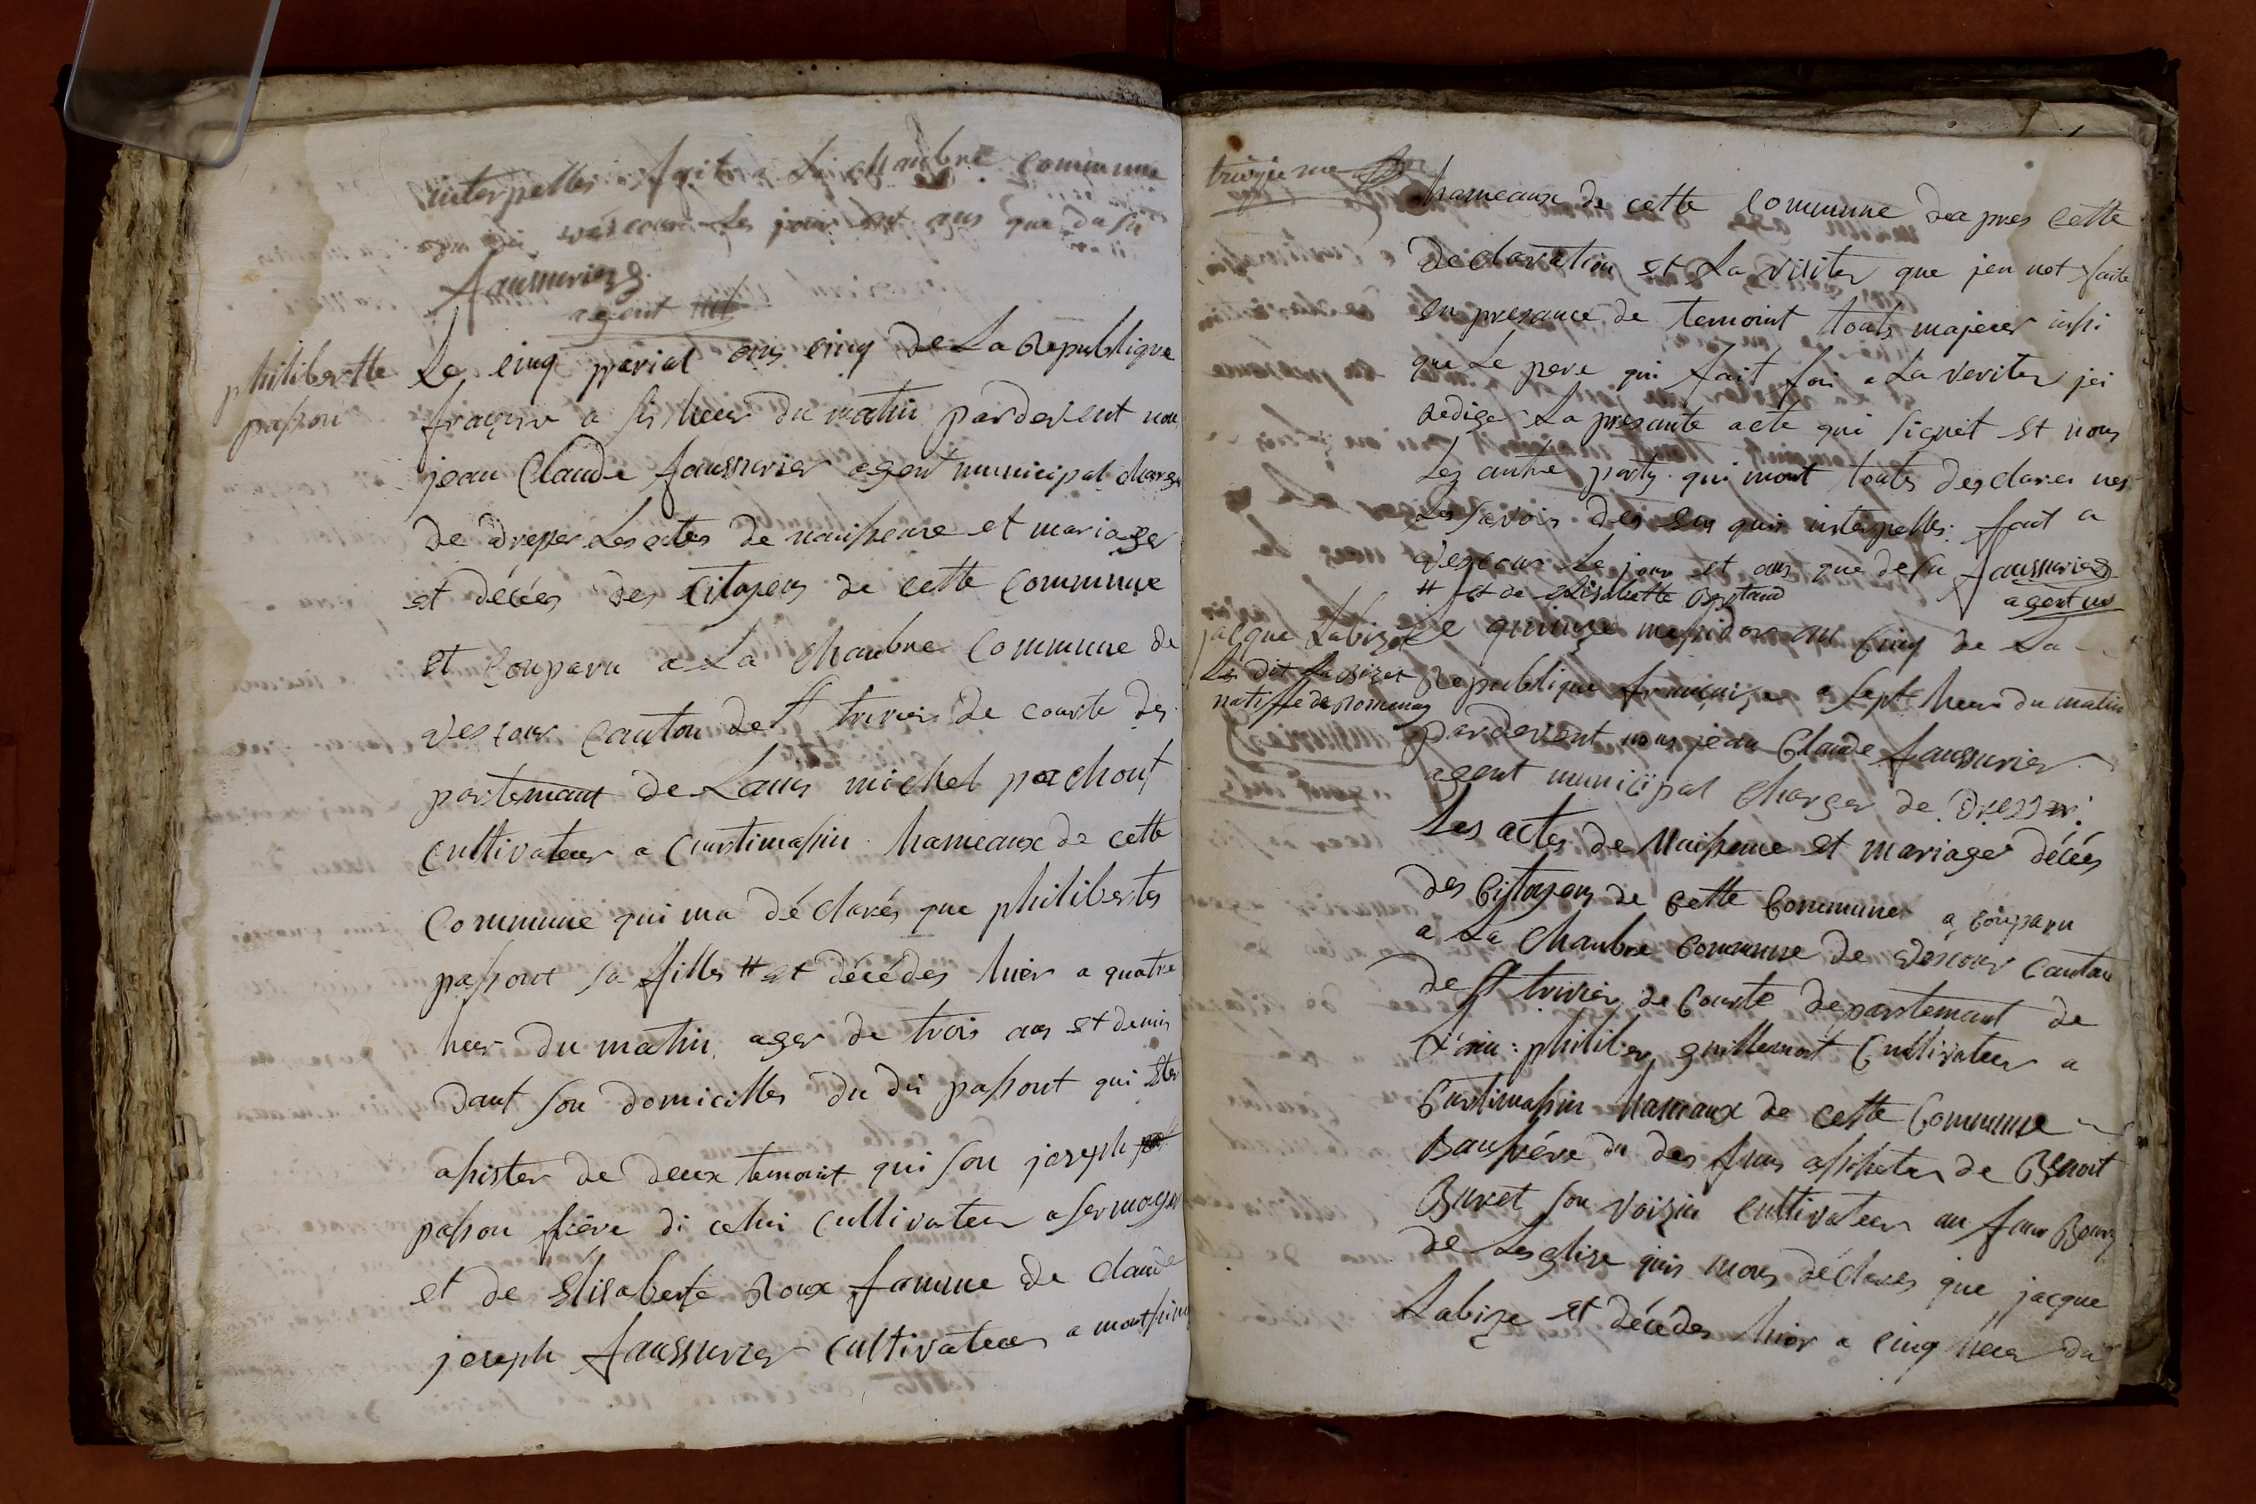 interpelles fait a La chanbre commune
vescour Les jour et ans que desu
faussurier
agent
philibertte
passon
Le cinq prerial ans cinq de La Republique
françise a sis heer du matin pardevent nou
jean Claude faussurier agent municipal charge
de dresser Les actes de naissence et mariager
et décées des Citoyens de cette Commune
et Conparu a La chanbre Commune de
vescour Canton de St trivier de courte de
partemant de Lains michel pachout
Cultivateur a Curtimassin hameaux de cette
Commune qui ma déclarés que philibertes
passout sa filles # et décédes hier a quatre
heer du matin ager de trois ans et demis
dant son domicilles du di passout qui Etes
assister de deux temoint qui son joseph
passon frère di celui Cultivateur a sermoyer
et de Elisaberte Roux famme de claude
joseph faussurier Cultivateur a montsimon
troisieme
hameaux de cette Commune dapres cette
declaration et La visiter que jen not faite
en presance de temoint touts majeur insi
que Le pere qui fait foi a La veriter jei
rediger La presante acte qui signét et nous
Les autre party qui mont touts desclares nes
Les savoir des Ens quis interpelles fait a
vescour Le jour et ans que desu faussurier
agent
# et de Elisabette Bertaud
jacque Labize
Le dit Labizet
natiffe de Romenay
Le quinze messidor an Cinq de La
Republique françaize a sept heer du matin
pardevent nous jean Claude faussurier
agent municipal charger de dresser
Les actes de Naissence et mariager décées
des Citoyens de cette Commune a conparu
a La chanbre Commune de vescour Canton
de St trivier de Courte departemant de
L'ain : philiber guillemot Cultivateur a
Curtimassin hameaux de cette Commune
Baufrére du des funs assisster de Benoit
Buret son voizin Cultivateur au faur Bourg
de Les glize quis mons déclares que jacque
Labize et décédes hier a cinq heer du